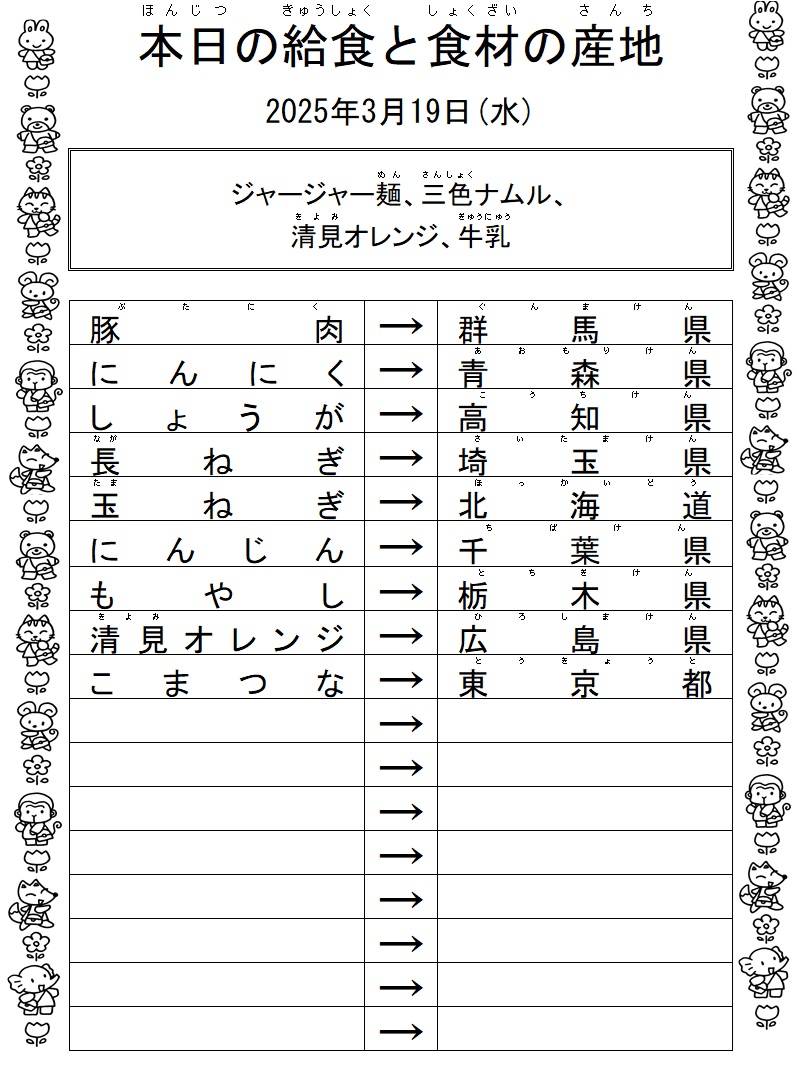 ほんじつ きゅうしょく しょくざい さんち
本日の給食と食材の産地
2025年3月19日(水)
めん さんしょく
ジャージャー麺、三色ナムル、
きよみ ぎゅうにゅう
清見オレンジ、牛乳
ぶたにく ぐんまけん
豚肉 → 群馬県
あおもりけん
にんにく → 青森県
こうちけん
しょうが → 高知県
なが さいたまけん
長ねぎ → 埼玉県
たま ほっかいどう
玉ねぎ → 北海道
ちばけん
にんじん → 千葉県
とちぎけん
もやし → 栃木県
きよみ ひろしまけん
清見オレンジ → 広島県
とうきょうと
こまつな → 東京都
→
→
→
→
→
→
→
→